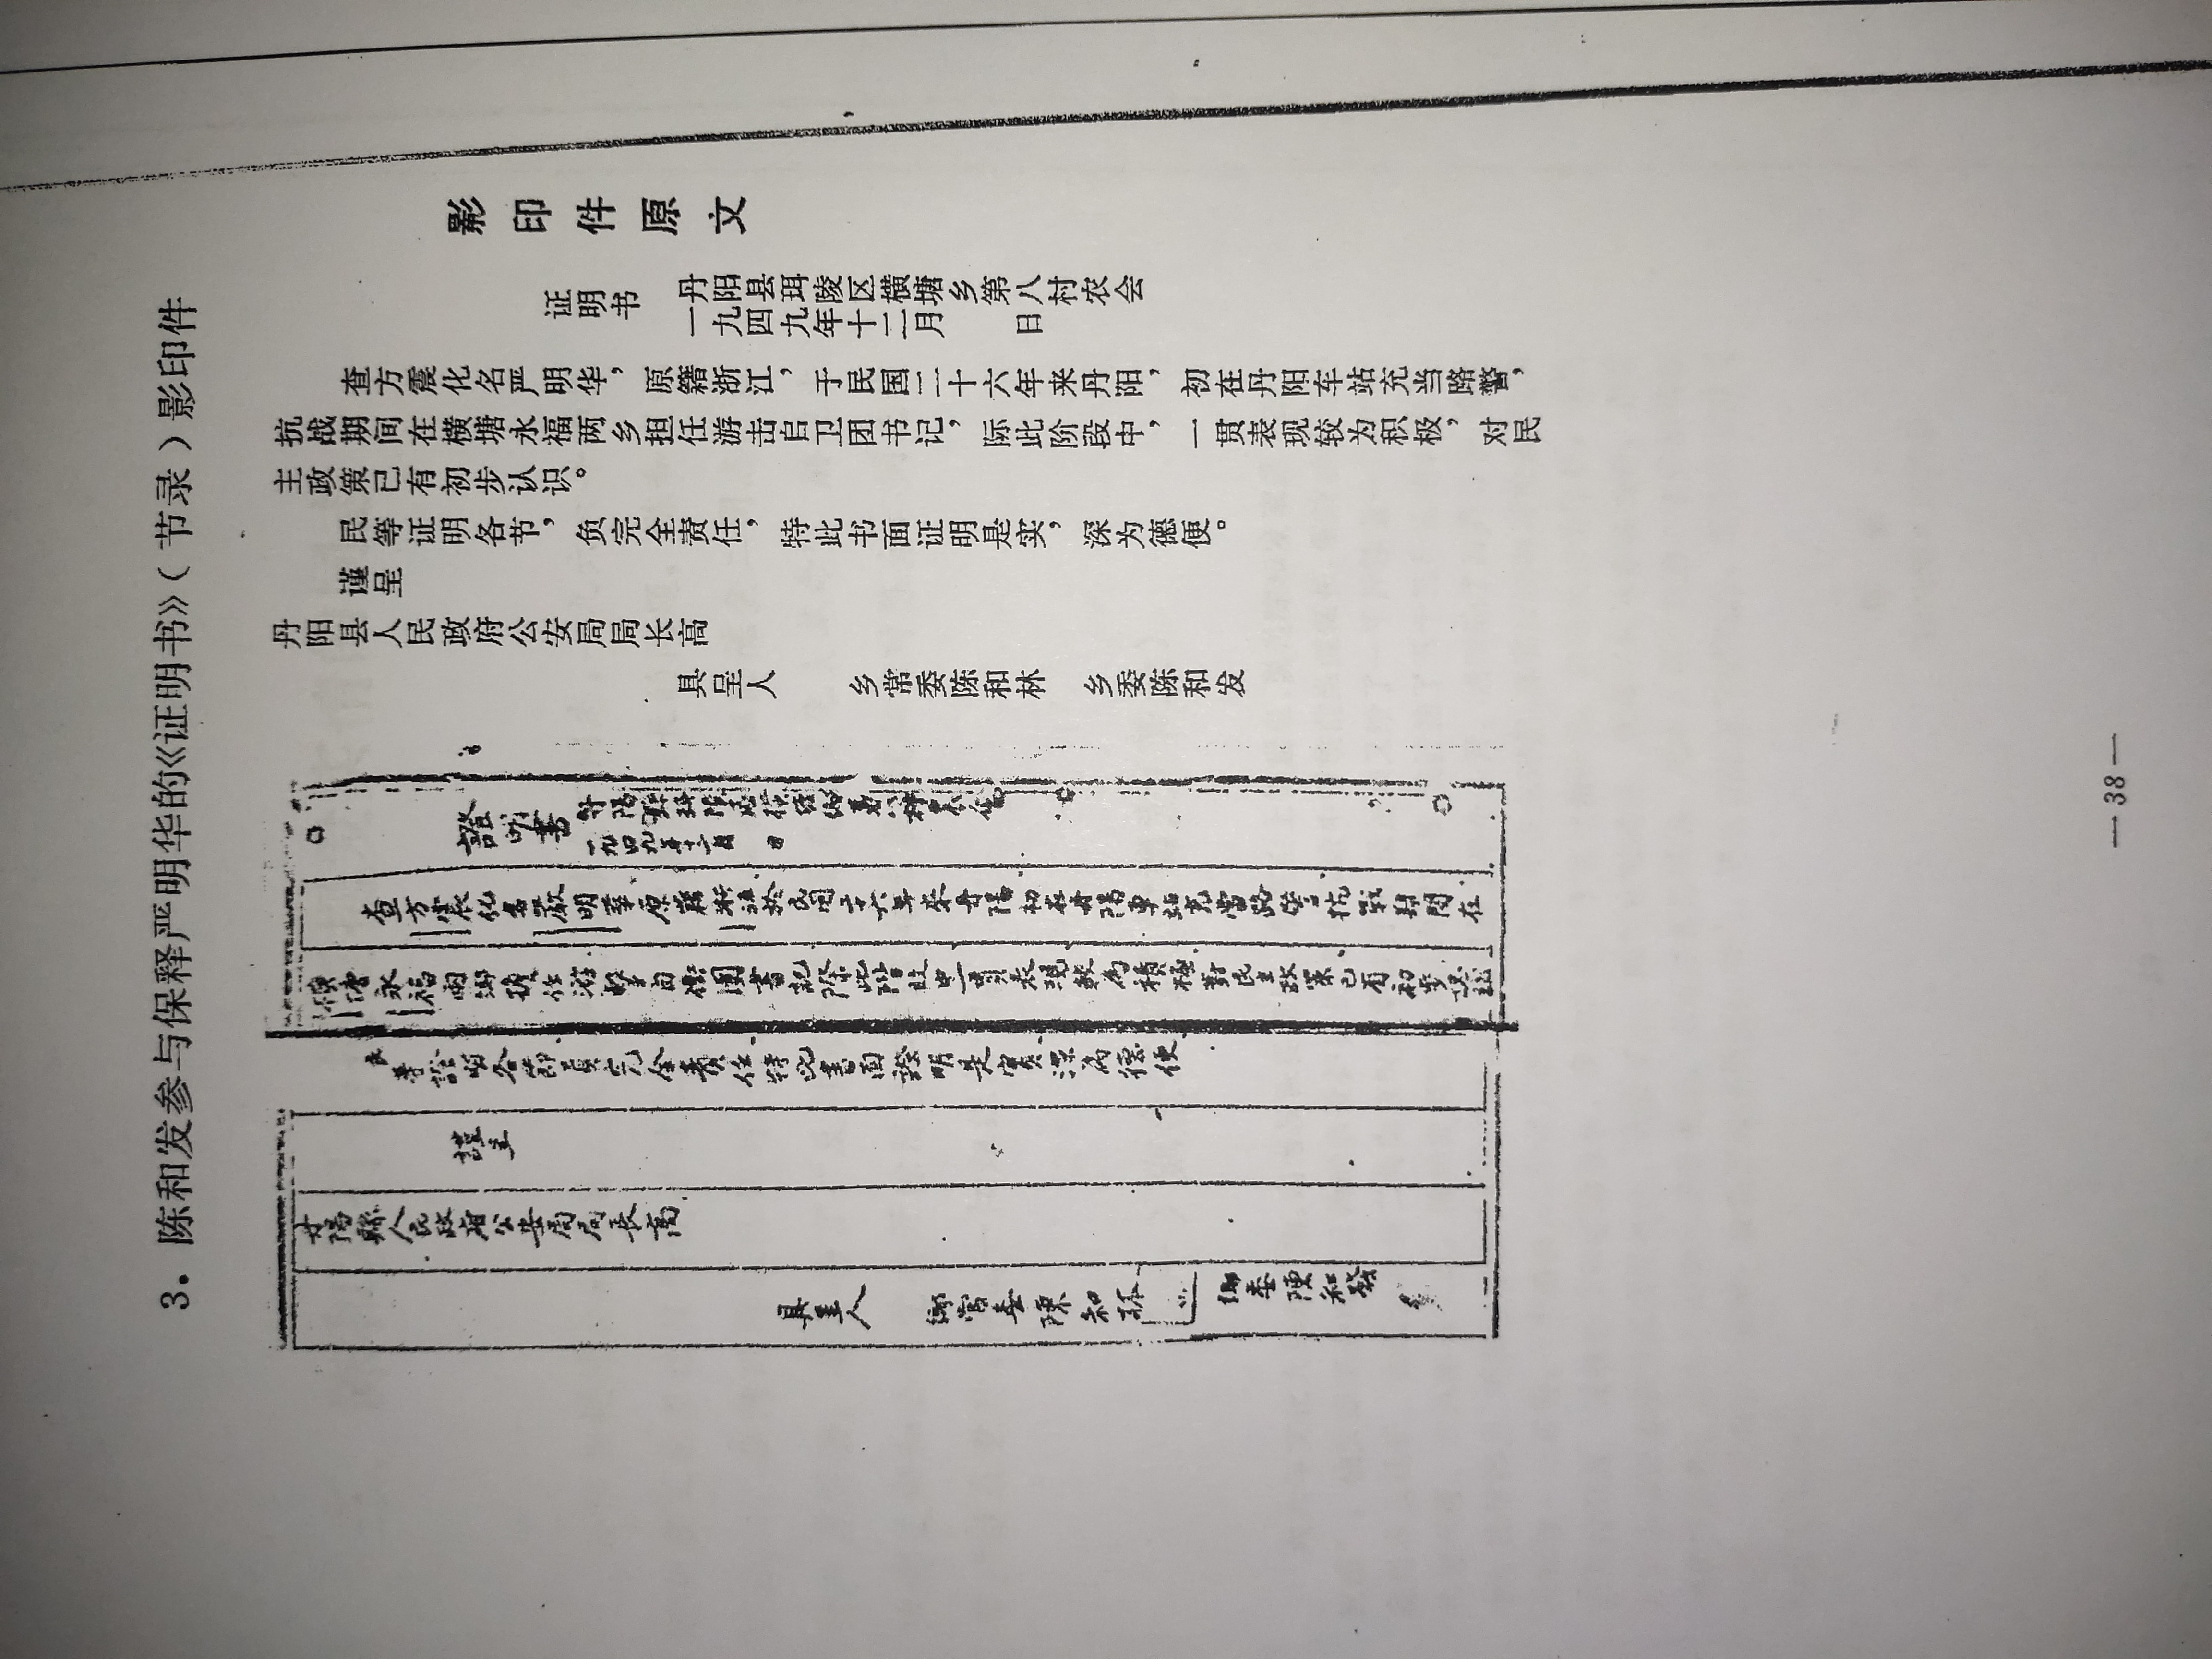 3．陈和发参与保释严明华的《证明书》（节录）影印件
影印件原文
证明书
丹阳县珥陵区横塘乡第八村农会
一九四九年十二月　日
查方震化名严明华，原籍浙江，于民国二十六年来丹阳，初在丹阳车站充当路警，
抗战期间在横塘永福两乡担任游击自卫团书记，际此阶段中，一贯表现较为积极，对民
主政策已有初步认识。
民等证明各节，负完全责任，特此书面证明是实，深为德便。
谨呈
丹阳县人民政府公安局局长高
具呈人　乡常委陈和林　乡委陈和发
證明書
丹陽縣珥陵區橫塘鄉第八村農會
一九四九年十二月　日
查方震化名嚴明華原籍浙江於民國二十六年來丹陽初在丹陽車站充當路警抗戰期間在
橫塘永福兩鄉擔任游擊自衛團書記際此階段中一貫表現較為積極對民主政策已有初步認識
民等證明各節負完全責任特此書面證明是實深為德便
謹呈
丹陽縣人民政府公安局局長高
具呈人　鄉常委陳和林　鄉委陳和發
— 38 —